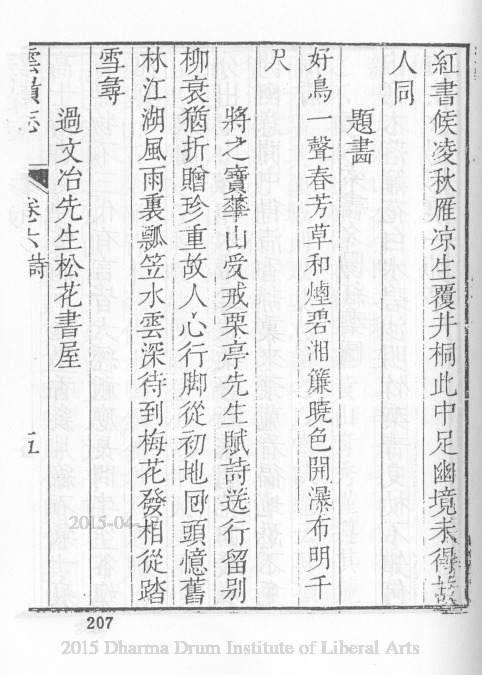 紅書俟凌秋雁凉生覆井桐此中足幽境未得故
人同
題畵
好鳥一聲春芳草和煙碧湘簾曉色開瀑布明千
尺
將之寶華山受戒栗亭先生賦詩送行留别
柳衰猶折贈珍重故人心行脚從初地囘頭憶舊
林江湖風雨裏瓢笠水雲深待到梅花發相從踏
雪尋
過文冶先生松花書屋
卷六詩
五
207
2015-04-
2015 Dharma Drum Institute of Liberal Arts